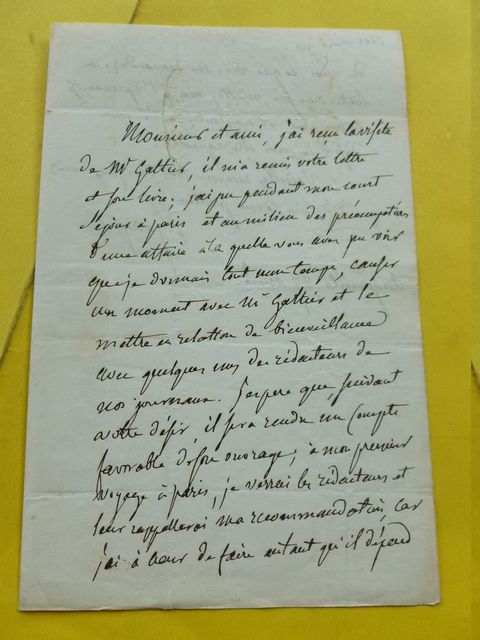 Monsieur et ami, j'ai reçu la visite
de Mr Galtier, il m'a remis votre lettre
et son livre; j'ai pu pendant mon court
séjour à paris et au milieu des préoccupations
d'une affaire à la quelle vous avez pu voir
que je donnais tout mon temps, causer
un moment avec Mr Galtier et le
mettre en relation de bienveillance
avec quelques uns des rédacteurs de
nos journaux. J'espère que, suivant
votre désir, il sera rendu un compte
favorable de son ouvrage; à mon premier
voyage à paris, je verrai les rédacteurs et
leur rappellerai ma recommandation, car
j'ai à cœur de faire autant qu'il dépend